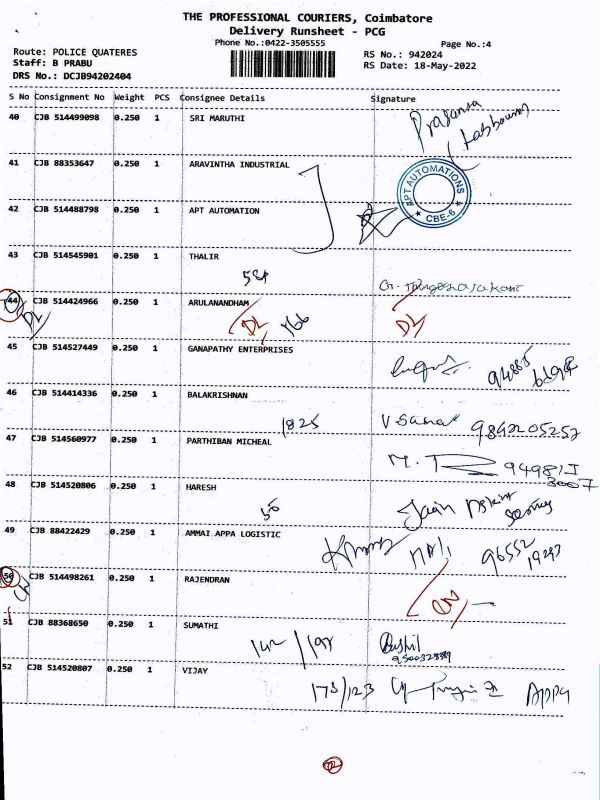 THE PROFESSIONAL COURIERS, Coimbatore
Delivery Runsheet - PCG
Phone No.:0422-3505555
Page No.:4
Route: POLICE QUATERES
RS No.: 942024
Staff: B PRABU
RS Date: 18-May-2022
DRS No.: DCJB94202404
S No Consignment No Weight PCS Consignee Details Signature
40 CJB 514499098 0.250 1 SRI MARUTHI
Prasanna
41 CJB 88353647 0.250 1 ARAVINTHA INDUSTRIAL
APT AUTOMATIONS
CBE-6
42 CJB 514488798 0.250 1 APT AUTOMATION
43 CJB 514545901 0.250 1 THALIR
44 CJB 514424966 0.250 1 ARULANANDHAM
DL DL 166 DL
45 CJB 514527449 0.250 1 GANAPATHY ENTERPRISES
46 CJB 514414336 0.250 1 BALAKRISHNAN
1825 9842205252
47 CJB 514560977 0.250 1 PARTHIBAN MICHEAL
48 CJB 514520806 0.250 1 HARESH
49 CJB 88422429 0.250 1 AMMAI APPA LOGISTIC
96552
50 CJB 514498261 0.250 1 RAJENDRAN
51 CJB 88368650 0.250 1 SUMATHI
142/198
52 CJB 514520807 0.250 1 VIJAY
173/123 Appa